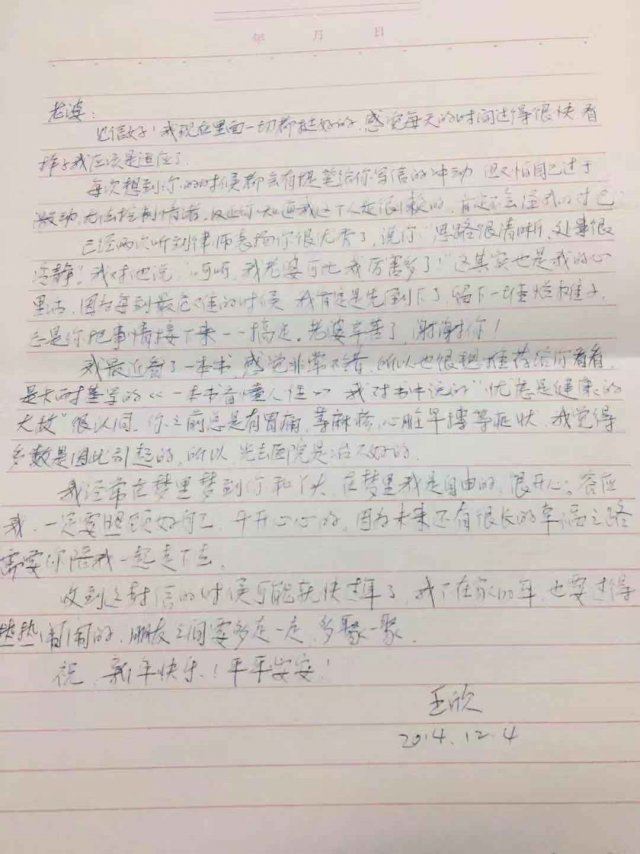 年 月 日
老婆：
见信好！我现在里面一切都挺好的，感觉每天的时间过得很快 看
样子我应该是适应了。
每次想到你的时候都会有提笔给你写信的冲动 但又怕自己过于
激动，无法控制情绪，反正你知道我这个人挺懒的，肯定不会怪我的对巴
已经两次听到律师表扬你很优秀了，说你"思路很清晰，处事很
冷静"，我对他说，"呵呵，我老婆可比我厉害多了！"这其实也是我的心
里话，因为每到最危难的时候 我肯定是先倒下了，留下一堆烂摊子，
总是你把事情接下来一一搞定，老婆辛苦了，谢谢你！
我最近看了一本书，感觉非常不错，所以也很想推荐给你看看，
是卡耐基写的《一本书看懂人性》 我对书中说的"忧虑是健康的
大敌"很认同，你之前总是有胃痛，荨麻疹，心脏早搏等症状，我觉得
多数是因此引起的，所以光去医院是治不好的，
我经常在梦里梦到你和丫头，在梦里我是自由的，很开心。答应
我，一定要照顾好自己，开开心心的，因为未来还有很长的幸福之路
需要你陪我一起走下去。
收到这封信的时候可能就快过年了，我不在家的年，也要过得
热热闹闹的，朋友之间要多走一走，多聚一聚，
祝 新年快乐！平平安安！
王欣
2014.12.4